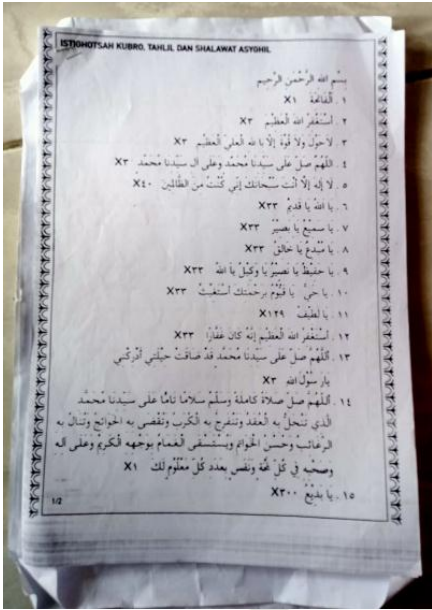 ISTIGHOTSAH KUBRO, TAHLIL DAN SHALAWAT ASYGHIL
بِسْمِ اللهِ الرَّحْمٰنِ الرَّحِيْمِ
١ . اَلْفَاتِحَةْ X١
٢ . أَسْتَغْفِرُ اللهَ الْعَظِيْمَ X٣
٣ . لَاحَوْلَ وَلَا قُوَّةَ إِلَّا بِا للهِ الْعَلِيِّ الْعَظِيْمِ X٣
٤ . اللّٰهُمَّ صَلِّ عَلَى سَيِّدِنَا مُحَمَّدٍ وَعَلَى آلِ سَيِّدِنَا مُحَمَّدٍ X٣
٥ . لَا إِلٰهَ إِلَّا أَنْتَ سُبْحَانَكَ إِنِّي كُنْتُ مِنَ الظَّالِمِيْنَ X٤٠
٦ . يَا اَللهُ يَا قَدِيْمُ X٣٣
٧ . يَا سَمِيْعُ يَا بَصِيْرُ X٣٣
٨ . يَا مُبْدِعُ يَا خَالِقُ X٣٣
٩ . يَا حَفِيْظُ يَا نَصِيْرُ يَا وَكِيْلُ يَا اَللهُ X٣٣
١٠ . يَا حَيُّ يَا قَيُّوْمُ بِرَحْمَتِكَ أَسْتَغِيْثُ X٣٣
١١ . يَا لَطِيْفُ X١٢٩
١٢ . أَسْتَغْفِرُ اللهَ الْعَظِيْمَ إِنَّهُ كَانَ غَفَّارًا X٣٣
١٣ . اَللّٰهُمَّ صَلِّ عَلَى سَيِّدِنَا مُحَمَّدٍ قَدْ ضَاقَتْ حِيْلَتِي أَدْرِكْنِي
يَار سُوْلَ اللهِ X٣
١٤ . اَللّٰهُمَّ صَلِّ صَلَاةً كَامِلَةً وَسَلِّمْ سَلَامًا تَامًّا عَلَى سَيِّدِنَا مُحَمَّدٍ
الَّذِي تَنْحَلُّ بِهِ الْعُقَدُ وَتَنْفَرِجُ بِهِ الْكُرَبُ وَتُقْضَى بِهِ الْحَوَائِجُ وَتُنَالُ بِهِ
الرَّغَائِبُ وَحُسْنُ الْخَوَاتِمِ وَيُسْتَسْقَى الْغَمَامُ بِوَجْهِهِ الْكَرِيْمِ وَعَلَى آلِهِ
وَصَحْبِهِ فِي كُلِّ لَمْحَةٍ وَنَفَسٍ بِعَدَدِ كُلِّ مَعْلُوْمٍ لَكَ X١
١٥ . يَا بَدِيْعُ X٣٠٠
1/2